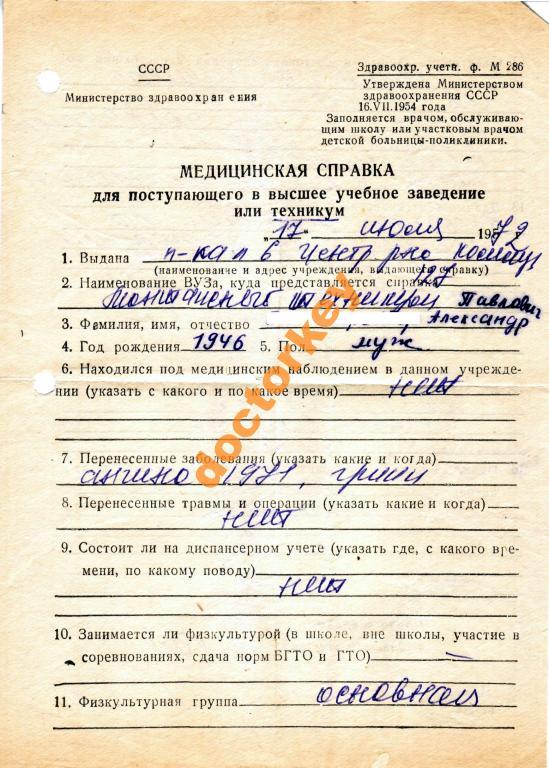 СССР
Министерство здравоохранения
Здравоохр. учетн. ф. М 286
Утверждена Министерством
здравоохранения СССР
16.VII.1954 года
Заполняется врачом, обслуживаю-
щим школу или участковым врачом
детской больницы-поликлиники.
МЕДИЦИНСКАЯ СПРАВКА
для поступающего в высшее учебное заведение
или техникум
„17" июля 1972
1. Выдана п-ка л 6 Центр
(наименование и адрес учреждения, выдающего справку)
2. Наименование ВУЗа, куда представляется справка
Павлович
3. Фамилия, имя, отчество Александр
4. Год рождения 1946 5. Пол муж
6. Находился под медицинским наблюдением в данном учрежде-
нии (указать с какого и по какое время) нет
7. Перенесенные заболевания (указать какие и когда)
ангина 1971, грипп
8. Перенесенные травмы и операции (указать какие и когда)
нет
9. Состоит ли на диспансерном учете (указать где, с какого вре-
мени, по какому поводу)
нет
10. Занимается ли физкультурой (в школе, вне школы, участие в
соревнованиях, сдача норм БГТО и ГТО) —
11. Физкультурная группа основная
doctorkey